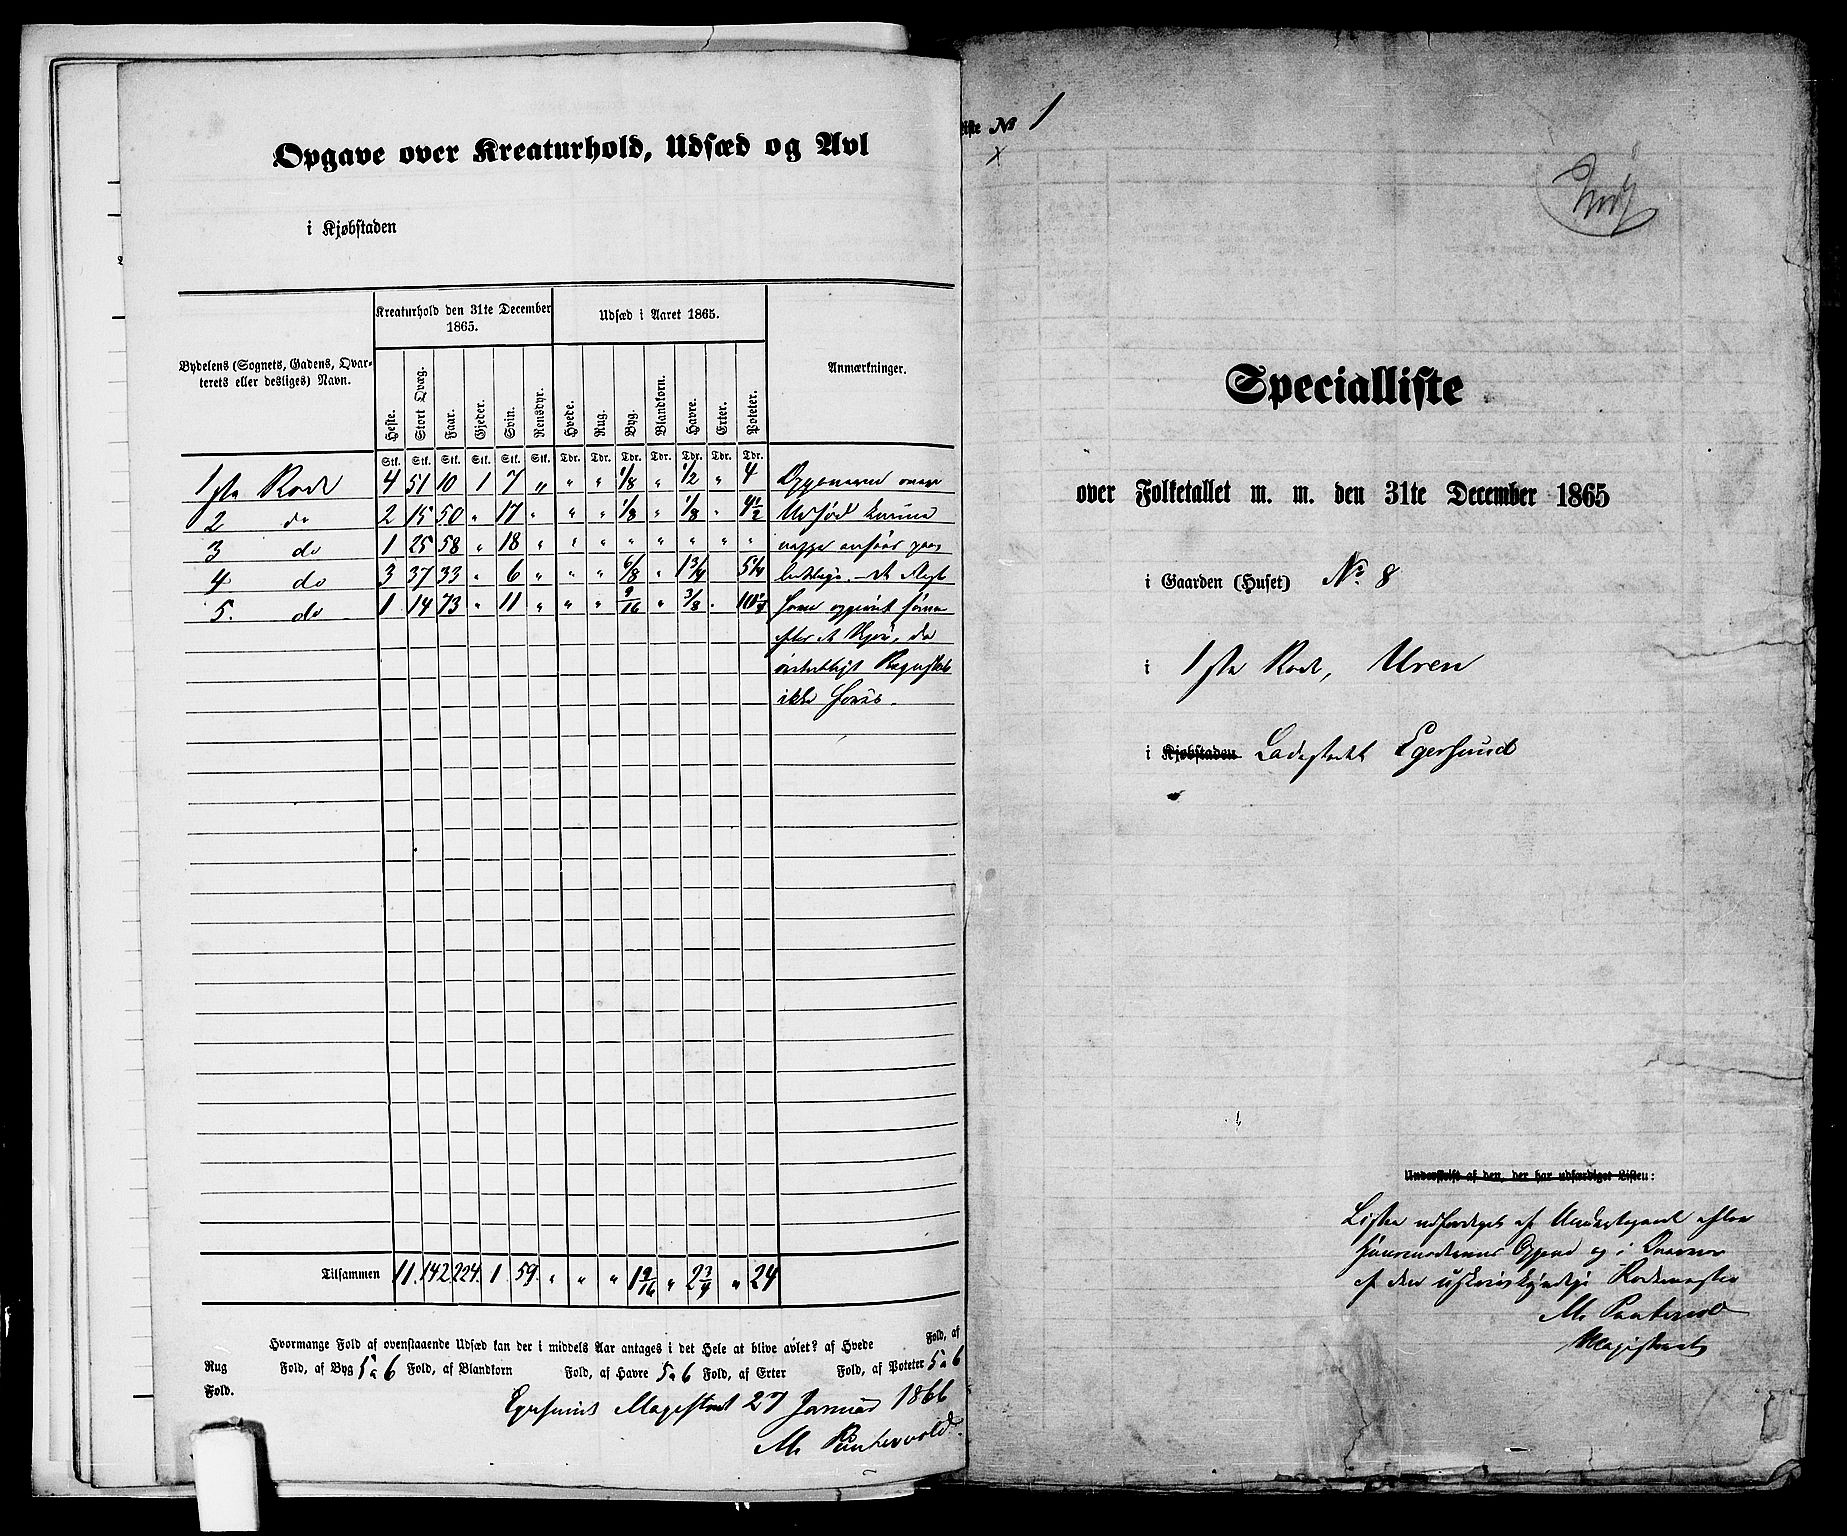 Opgave over Kreaturhold, Udsæd og Avl
i Kjøbstaden
Bydelens (Sognets, Gadens, Qvar-
terets eller desliges) Navn.
Kreaturhold den 31te December
1865.
Udsæd i Aaret 1865.
Anmærkninger.
Heste. Stort Qvæg. Faar. Gjeder. Svin. Rensdyr. Hvede. Rug. Byg. Blandkorn. Havre. Erter. Poteter.
Stk. Stk. Stk. Stk. Stk. Stk. Tdr. Tdr. Tdr. Tdr. Tdr. Tdr. Tdr.
1ste Rode 4 51 10 1 7 " " " 1/8 " 1/2 " 4 Opgaverne over
2 do 2 15 50 " 17 " " " 1/8 " 1/8 " 4 1/2 Udsæd kunne
3 do 1 25 58 " 18 " " " " " " " " neppe ansees paa-
4 do 3 37 33 " 6 " " " 6/8 " 1 3/4 5 1/4 lidelige. – de fleste
5. do 1 14 73 " 11 " " " 9/16 " 3/8 " 10 1/4 have opgivet samme
efter et Skjøn, da
ordentligt Regnskab
ikke føres.
Tilsammen 11. 142 224. 1 59. " " " 1 9/16 " 2 3/4 " 24
Hvormange Fold af ovenstaaende Udsæd kan der i middels Aar antages i det Hele at blive avlet? af Hvede Fold, af
Rug Fold, af Byg 5 a 6 Fold, af Blandkorn Fold, af Havre 5 a 6 Fold, af Erter Fold, af Poteter 5 a 6
Fold.
Egersunds Magistrat 27 Januar 1866
M. Puntervold
Liste No 1
x
Specialliste
over Folketallet m. m. den 31te December 1865
i Gaarden (Huset) No 8
i 1ste Rode, Uren
i Kjøbstaden Ladestedet Egersund
Underskrift af den, der har udfærdiget Listen:
Listen udfærdiget af Undertegnede efter
Huusmødrenes Opgave og i Nærvær
af den uskrivekyndige Rodemester
M. Puntervold
Magistrat